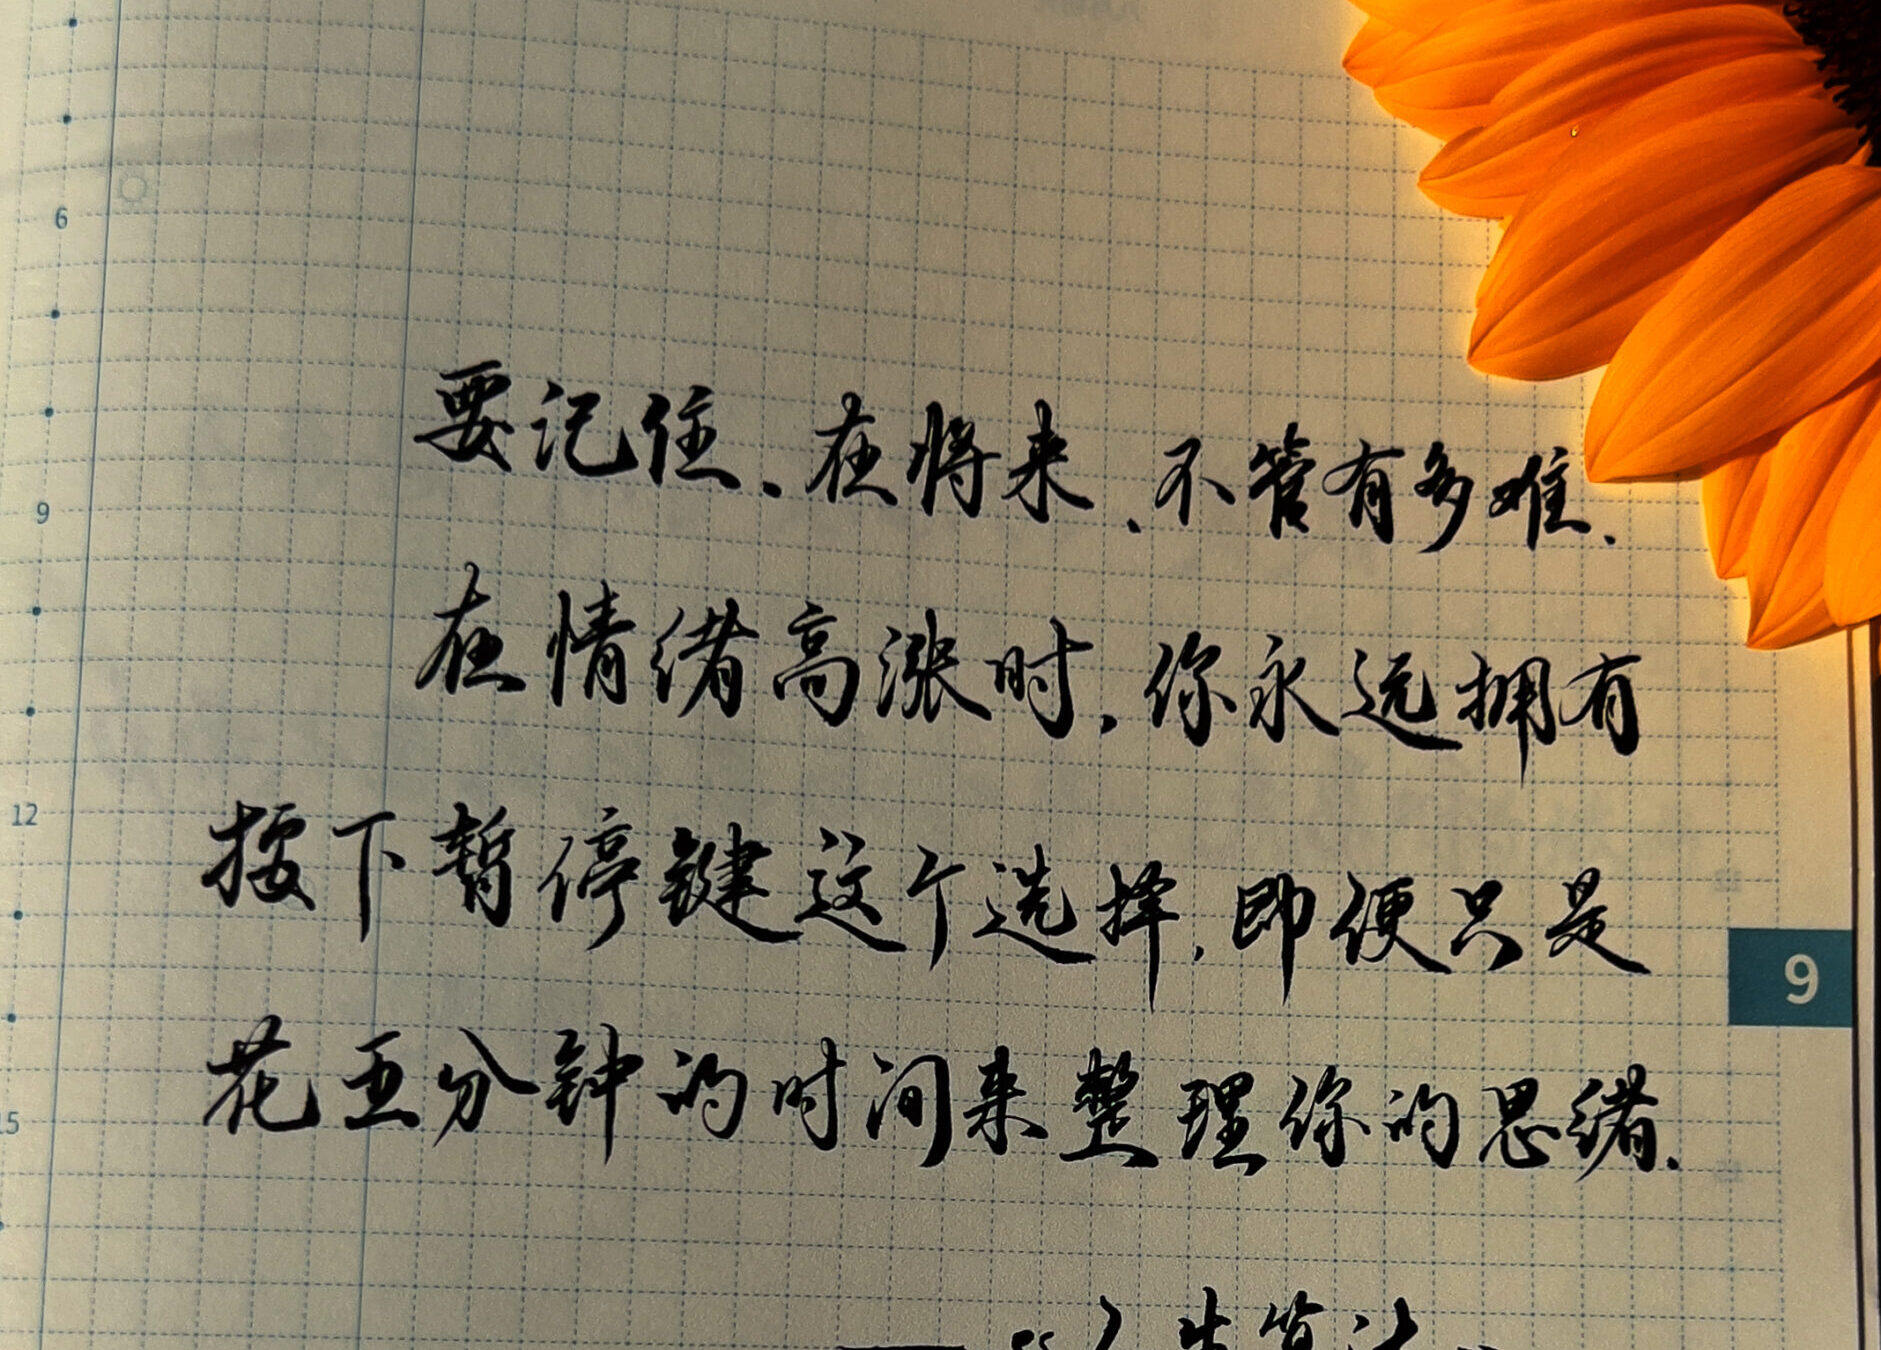 6
9
12
15
要记住、在将来、不管有多难、
在情绪高涨时，你永远拥有
按下暂停键这个选择，即便只是
花五分钟的时间来整理你的思绪.
9